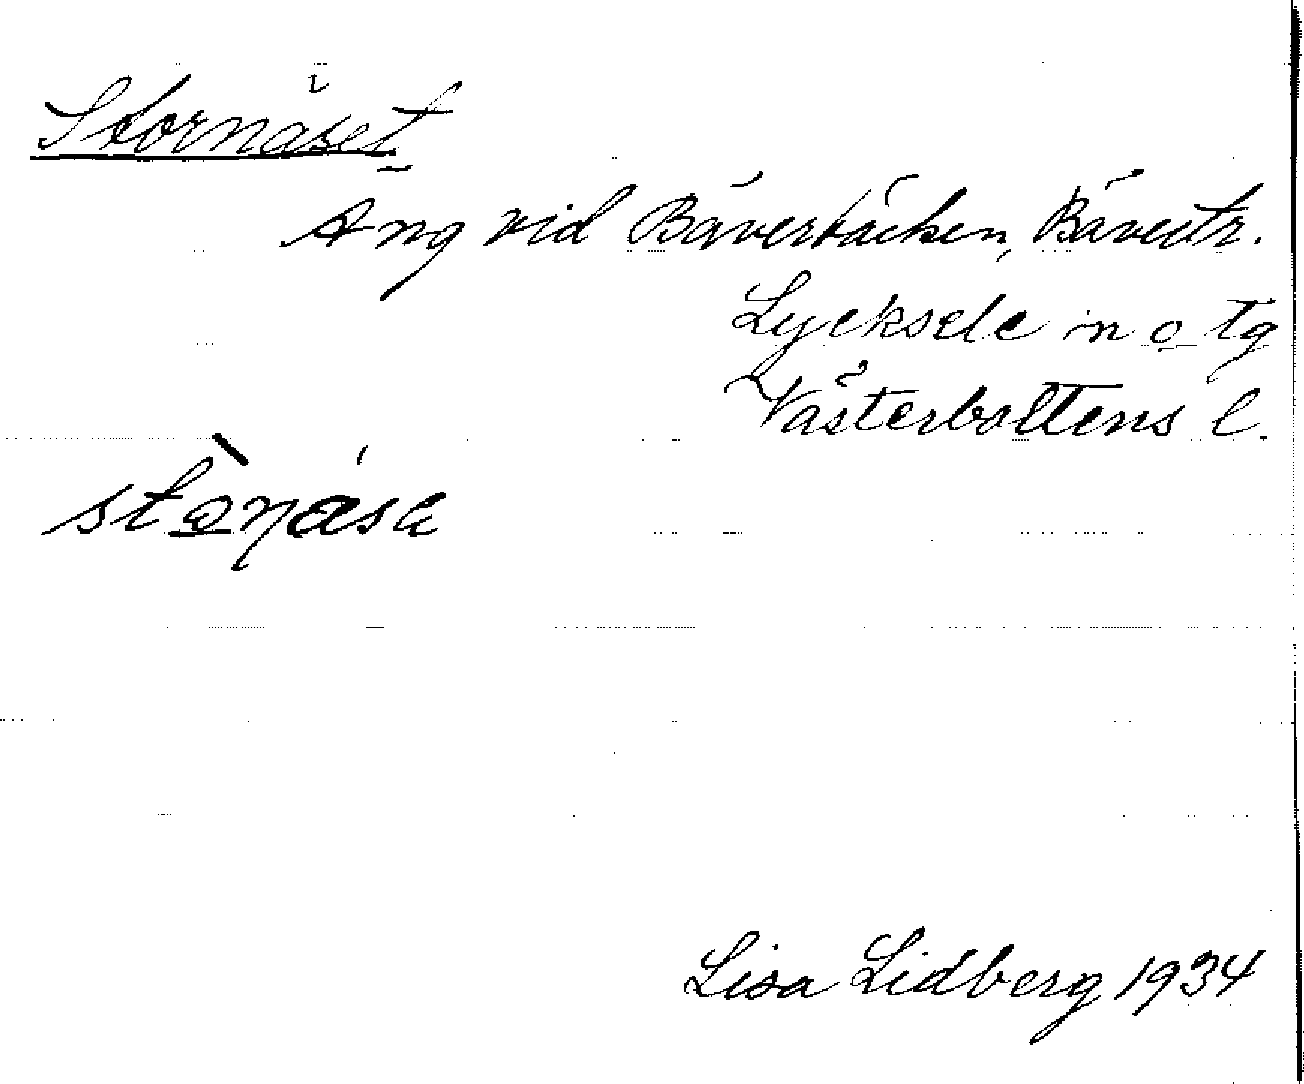 Stornäset
Äng vid Bäverbäcken, Bävertr.
Lycksele in o tg
Västerbottens l.
Lisa Lidberg 1934